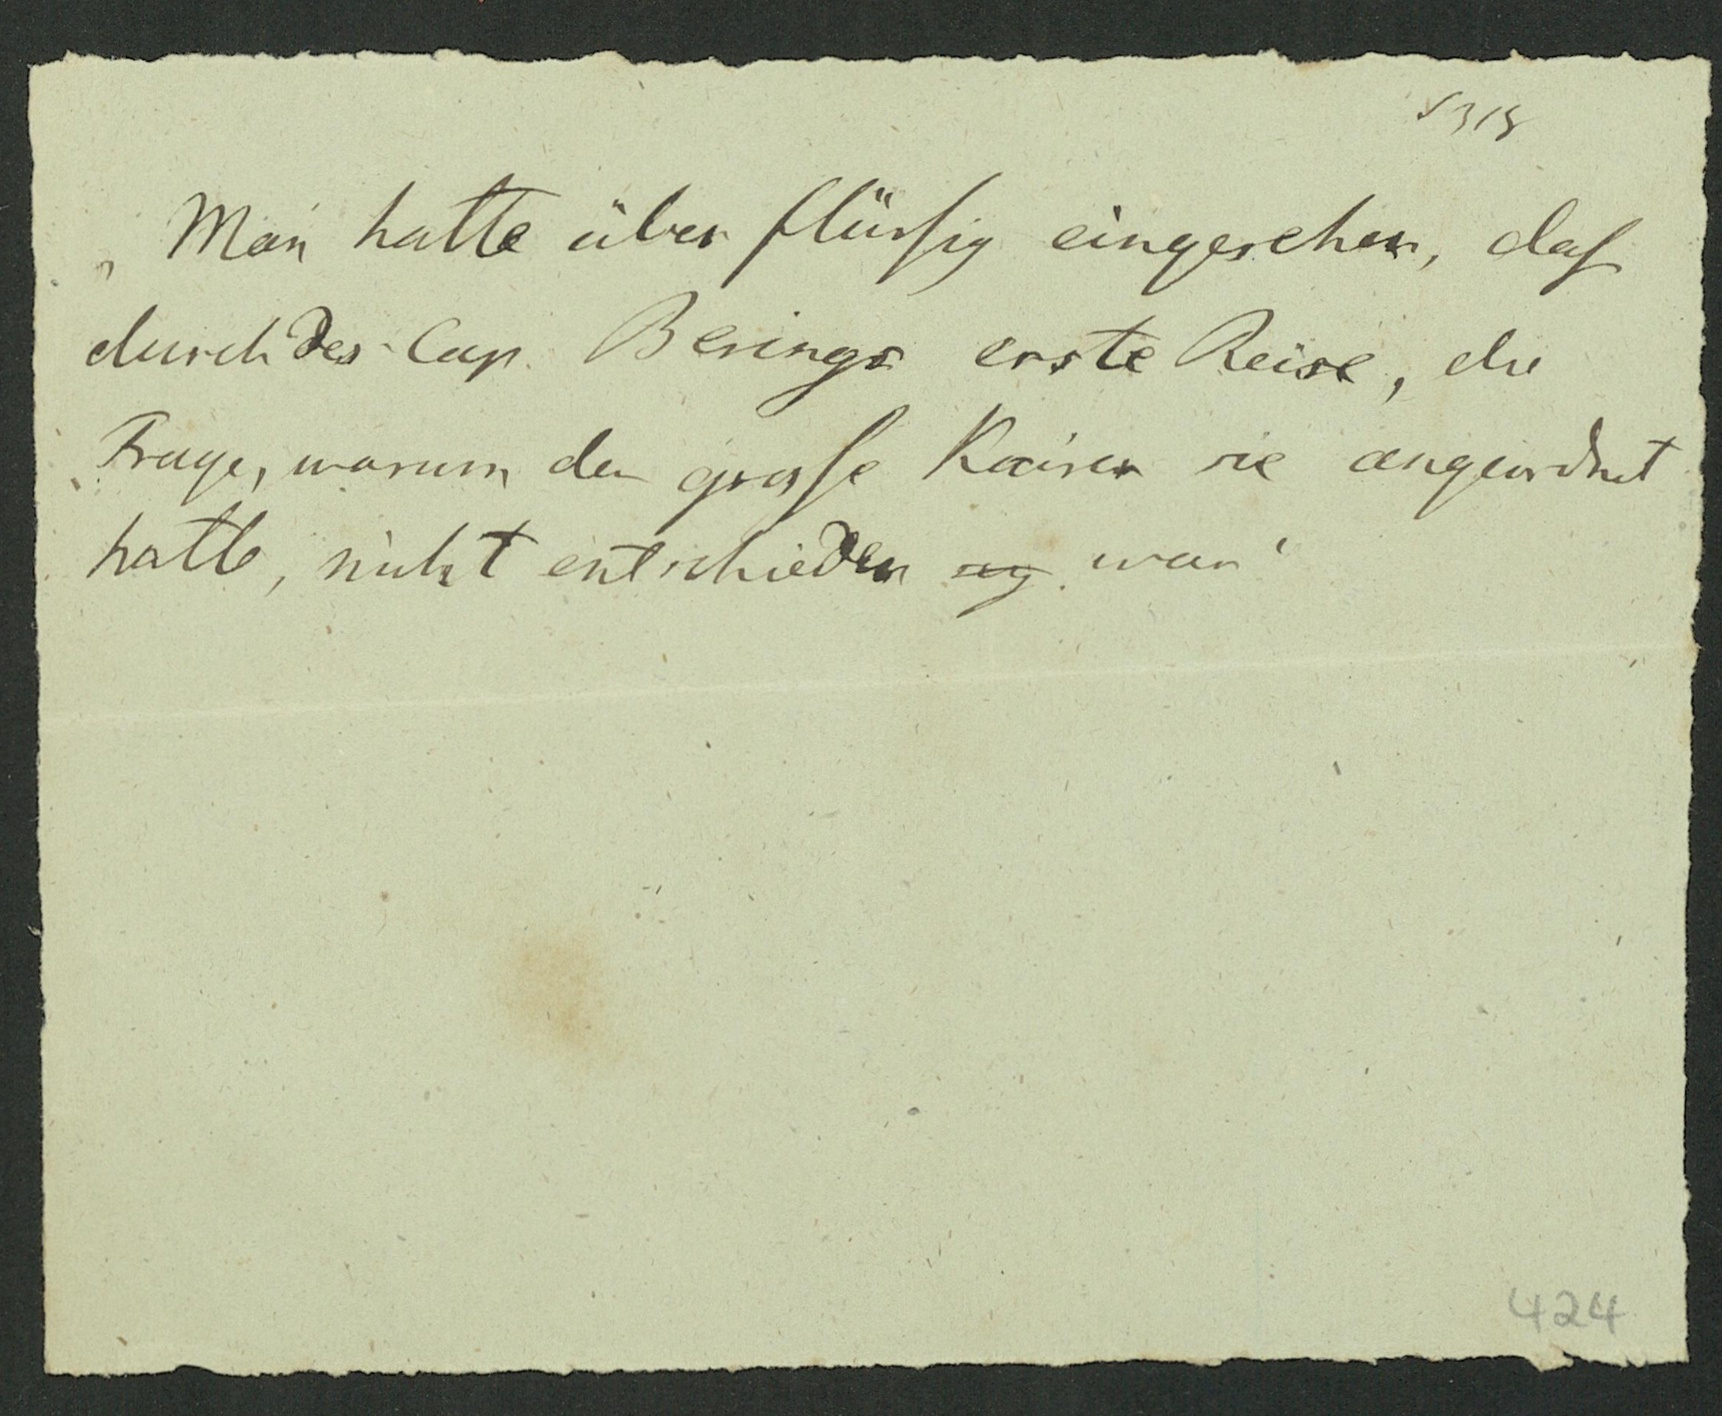 „Man hatte über flüssig eingesehen, daß
durch des Cap. Berings erste Reise, die
Frage, warum der grosse Kaiser sie angeordnet
hatte, nicht entschieden war“
424